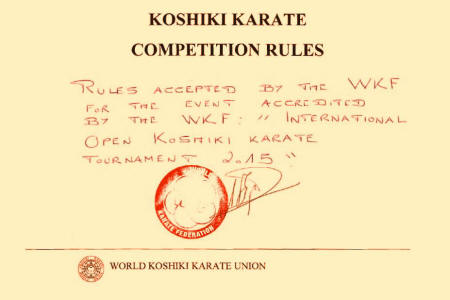 KOSHIKI KARATE
COMPETITION RULES
RULES ACCEPTED BY THE WKF
FOR THE EVENT ACCREDITED
BY THE WKF: "INTERNATIONAL
OPEN KOSHIKI KARATE
TOURNAMENT 2015"
KARATE FEDERATION
WORLD KOSHIKI KARATE UNION